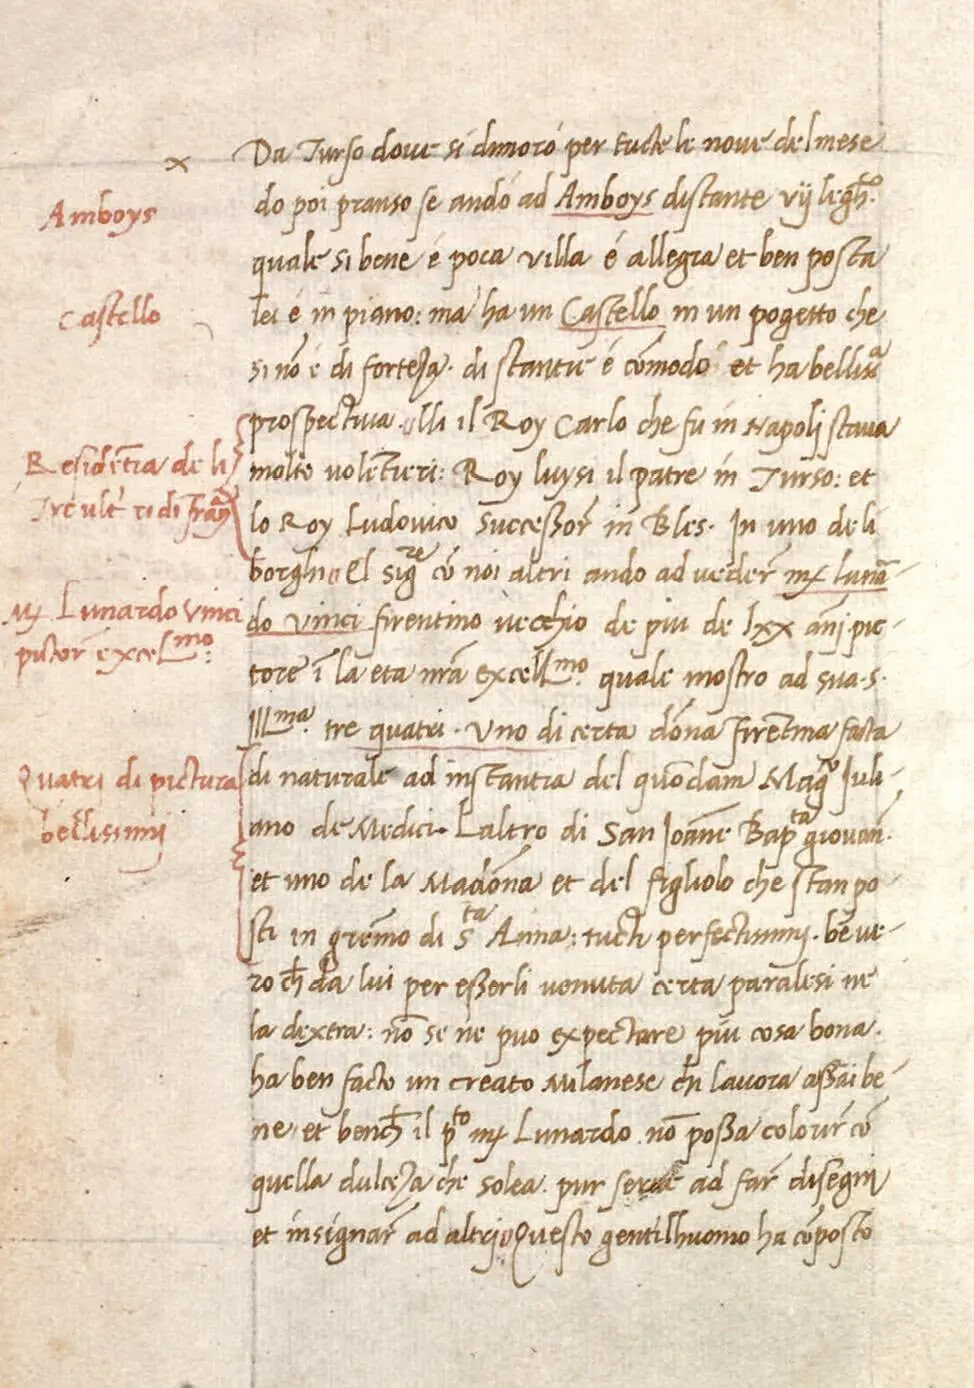 x
Da Turso dove si dimoró per tucte le nove del mese
Amboys
do poi pranso se andó ad Amboys distante vij legh.º
quale si bene é poca villa é allegra et ben posta
Castello
lei é in piano: ma ha un Castello in un pogetto che
si nō é di forteza. di stantie é cōmodo et ha belliss.ª
prospectiva. illi il Roy Carlo che fu in Napoli stava
Residētia de li
molto volētieri: Roy luysi il patre in Turso: et
tre ult.ⁱ ri di Frāza
lo Roy Ludovico Successor̄ in Bles. In uno de li
borghi El sig.ʳᵉ cō noi altri ando ad veder̄ mẜ lunar-
Mẜ Lunardo vinci
do vinci firentino vecchio de piu de lxx anj pic-
pictor̄ excell.ᵐᵒ
tore ī la eta nrā excell.ᵐᵒ quale mostro ad sua .S.
Ill.ᵐᵃ tre quatri. Uno di certa dōna firētina facta
Quatri di pictura
di naturale ad instantia del quōdam Mag.ᶜᵒ Juli-
bellissimi
ano de Medici. Laltro di San Joāne Bap.ᵗᵃ giovan̄.
et uno de la Madōna et del figliolo che stan po-
sti in grēmo di S.ᵗᵃ Anna: tucti perfectissimi. bē ve-
ro ch̄ da lui per esserli venuta certa paralesi ne
la dextra: nō se ne puo expectare piu cosa bona.
ha ben facto un creato Milanese ch̄i lavora assai be-
ne. et bench̄ il p.ᵗᵒ mẜ Lunardo nō possa colorir̄ cō
quella dulceza che solea. pur serve ad far̄ disegni
et insignar̄ ad altri. Questo gentilhuomo ha cōposto